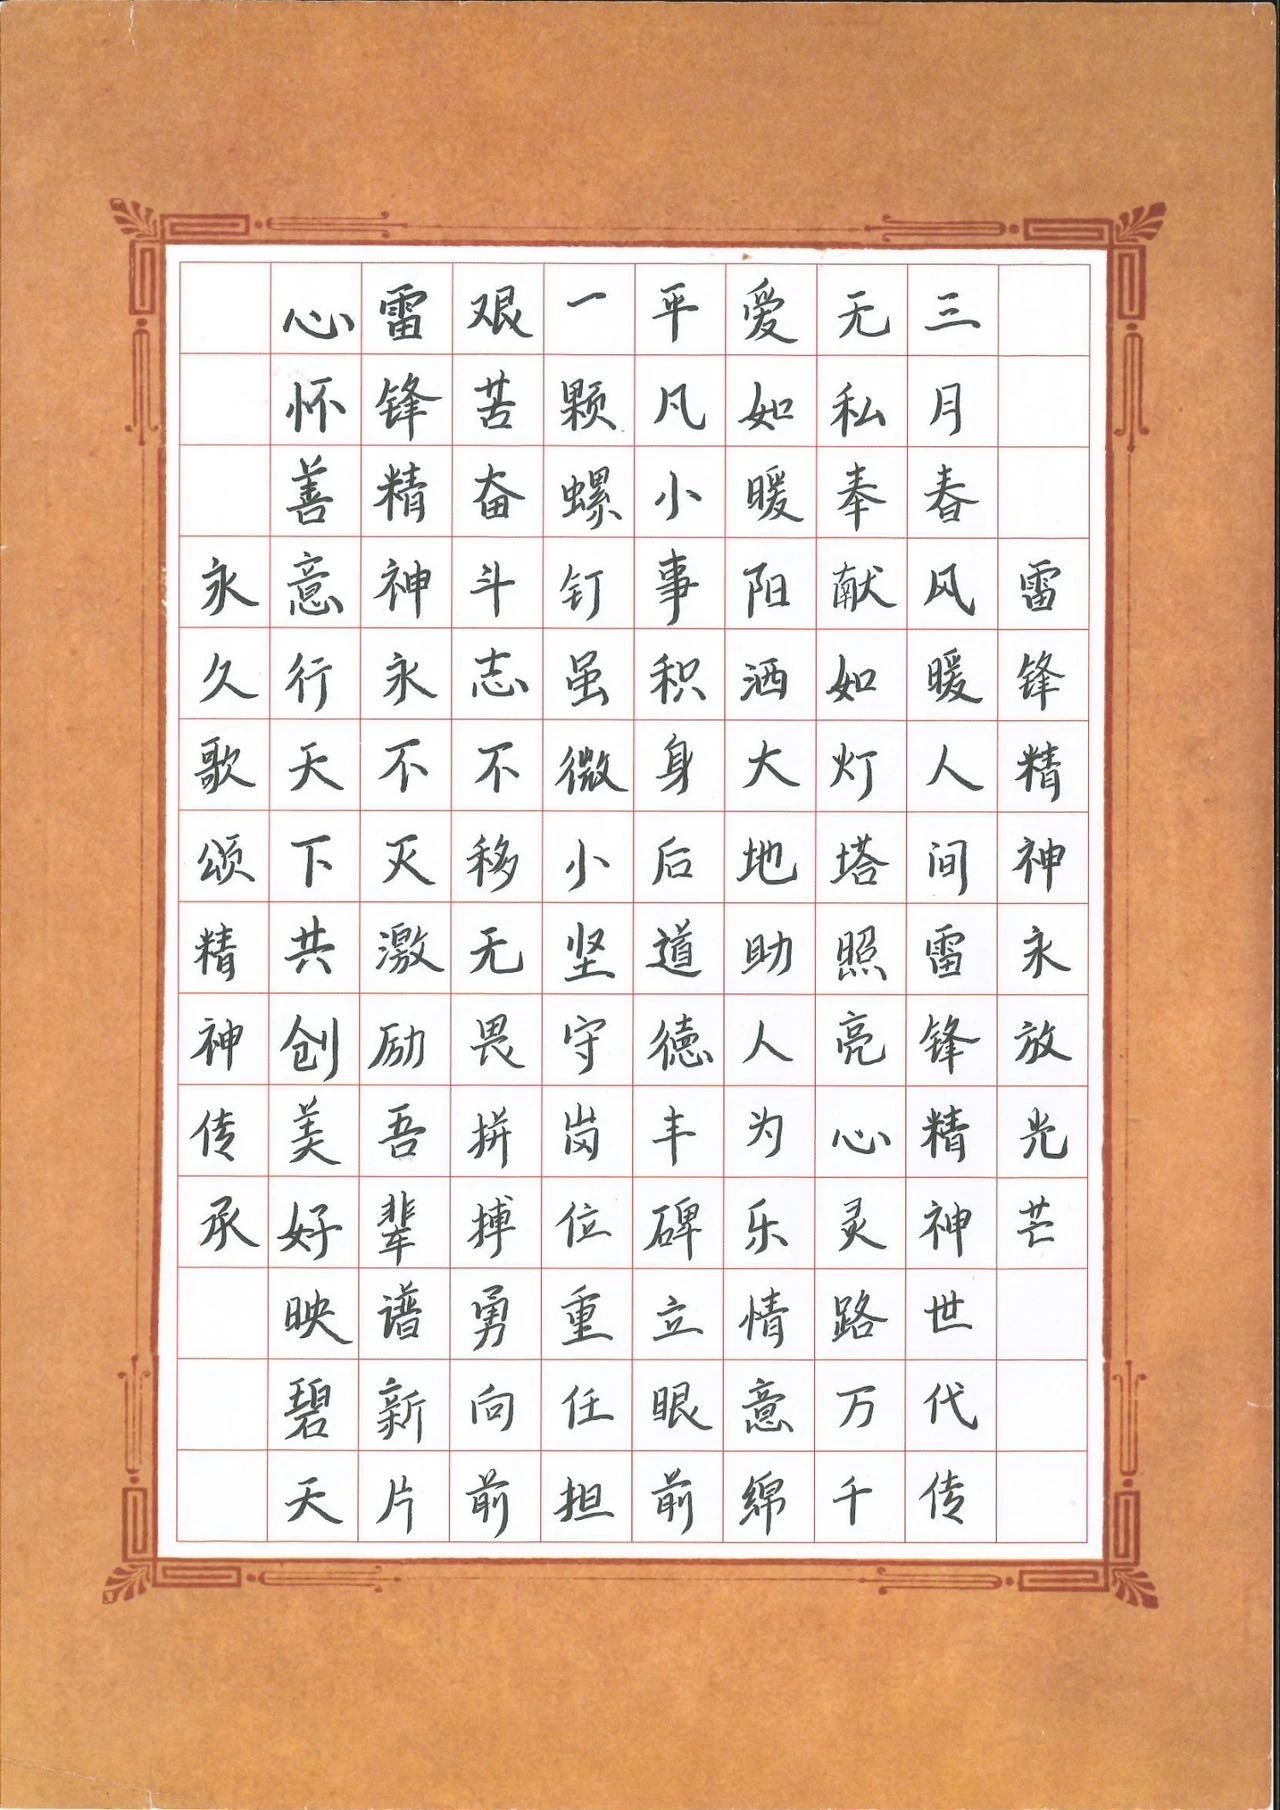 雷锋精神永放光芒
三月春风暖人间雷锋精神世代传
无私奉献如灯塔照亮心灵路万千
爱如暖阳洒大地助人为乐情意绵
平凡小事积身后道德丰碑立眼前
一颗螺钉虽微小坚守岗位重任担
艰苦奋斗志不移无畏拼搏勇向前
雷锋精神永不灭激励吾辈谱新片
心怀善意行天下共创美好映碧天
永久歌颂精神传承